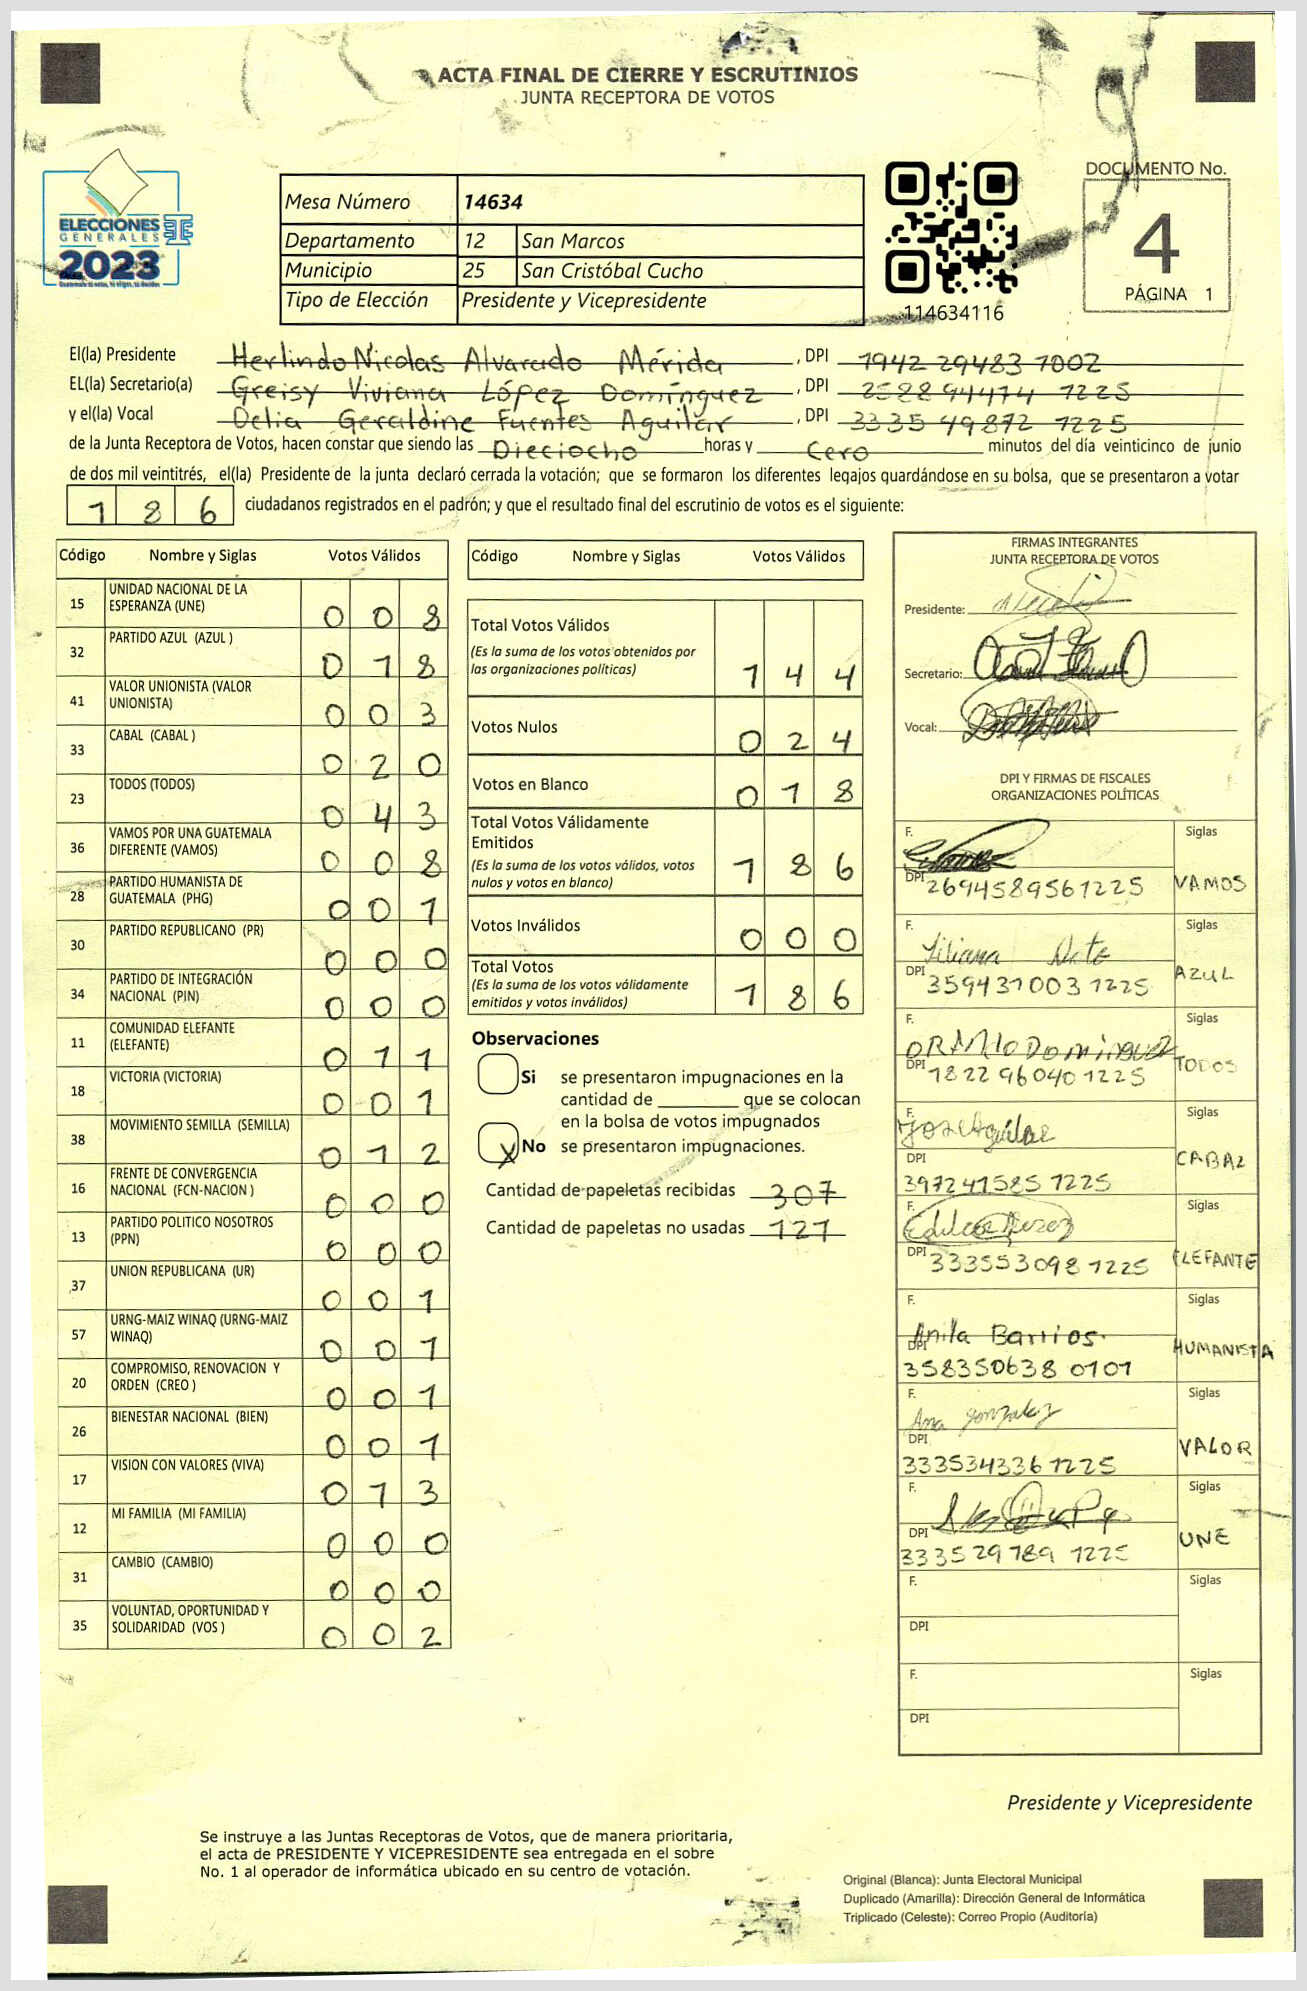 ACTA FINAL DE CIERRE Y ESCRUTINIOS
JUNTA RECEPTORA DE VOTOS
ELECCIONES
GENERALES
2023
Mesa Número 14634
Departamento 12 San Marcos
Municipio 25 San Cristóbal Cucho
Tipo de Elección Presidente y Vicepresidente
114634116
DOCUMENTO No.
4
PÁGINA 1
El(la) Presidente Herlindo Nicolas Alvarado Mérida, DPI 1942 29483 1002
EL(la) Secretario(a) Greisy Viviana López Domínguez, DPI 2588 94474 1225
y el(la) Vocal Delia Geraldine Fuentes Aguilar, DPI 3335 49872 1225
de la Junta Receptora de Votos, hacen constar que siendo las Dieciocho horas y Cero minutos del día veinticinco de junio
de dos mil veintitrés, el(la) Presidente de la junta declaró cerrada la votación; que se formaron los diferentes legajos guardándose en su bolsa, que se presentaron a votar
186 ciudadanos registrados en el padrón; y que el resultado final del escrutinio de votos es el siguiente:
Código Nombre y Siglas Votos Válidos
15 UNIDAD NACIONAL DE LA ESPERANZA (UNE) 008
32 PARTIDO AZUL (AZUL ) 018
41 VALOR UNIONISTA (VALOR UNIONISTA) 003
33 CABAL (CABAL ) 020
23 TODOS (TODOS) 043
36 VAMOS POR UNA GUATEMALA DIFERENTE (VAMOS) 008
28 PARTIDO HUMANISTA DE GUATEMALA (PHG) 001
30 PARTIDO REPUBLICANO (PR) 000
34 PARTIDO DE INTEGRACIÓN NACIONAL (PIN) 000
11 COMUNIDAD ELEFANTE (ELEFANTE) 011
18 VICTORIA (VICTORIA) 001
38 MOVIMIENTO SEMILLA (SEMILLA) 012
16 FRENTE DE CONVERGENCIA NACIONAL (FCN-NACION ) 000
13 PARTIDO POLITICO NOSOTROS (PPN) 000
37 UNION REPUBLICANA (UR) 001
57 URNG-MAIZ WINAQ (URNG-MAIZ WINAQ) 001
20 COMPROMISO, RENOVACION Y ORDEN (CREO ) 001
26 BIENESTAR NACIONAL (BIEN) 001
17 VISION CON VALORES (VIVA) 013
12 MI FAMILIA (MI FAMILIA) 000
31 CAMBIO (CAMBIO) 000
35 VOLUNTAD, OPORTUNIDAD Y SOLIDARIDAD (VOS ) 002
Código Nombre y Siglas Votos Válidos
Total Votos Válidos
(Es la suma de los votos obtenidos por
las organizaciones políticas) 144
Votos Nulos 024
Votos en Blanco 018
Total Votos Válidamente
Emitidos
(Es la suma de los votos válidos, votos
nulos y votos en blanco) 186
Votos Inválidos 000
Total Votos
(Es la suma de los votos válidamente
emitidos y votos inválidos) 186
Observaciones
Si se presentaron impugnaciones en la
cantidad de que se colocan
en la bolsa de votos impugnados
X No se presentaron impugnaciones.
Cantidad de papeletas recibidas 307
Cantidad de papeletas no usadas 121
FIRMAS INTEGRANTES
JUNTA RECEPTORA DE VOTOS
Presidente:
Secretario:
Vocal:
DPI Y FIRMAS DE FISCALES
ORGANIZACIONES POLÍTICAS
F. Siglas
DPI 2694589561225 VAMOS
F. Liliana Siglas
DPI 359431003 1225 AZUL
F. Siglas
DPI 1822 96040 1225 TODOS
F. Siglas
DPI
397241585 1225 CABAL
F. Siglas
DPI 333553098 1225 ELEFANTE
F. Anila Barrios. Siglas
DPI
358350638 0101 HUMANISTA
F. Ana Gonzalez Siglas
DPI
333534336 1225 VALOR
F. Siglas
DPI
333529789 1225 UNE
F. Siglas
DPI
F. Siglas
DPI
Presidente y Vicepresidente
Se instruye a las Juntas Receptoras de Votos, que de manera prioritaria,
el acta de PRESIDENTE Y VICEPRESIDENTE sea entregada en el sobre
No. 1 al operador de informática ubicado en su centro de votación.
Original (Blanca): Junta Electoral Municipal
Duplicado (Amarilla): Dirección General de Informática
Triplicado (Celeste): Correo Propio (Auditoría)